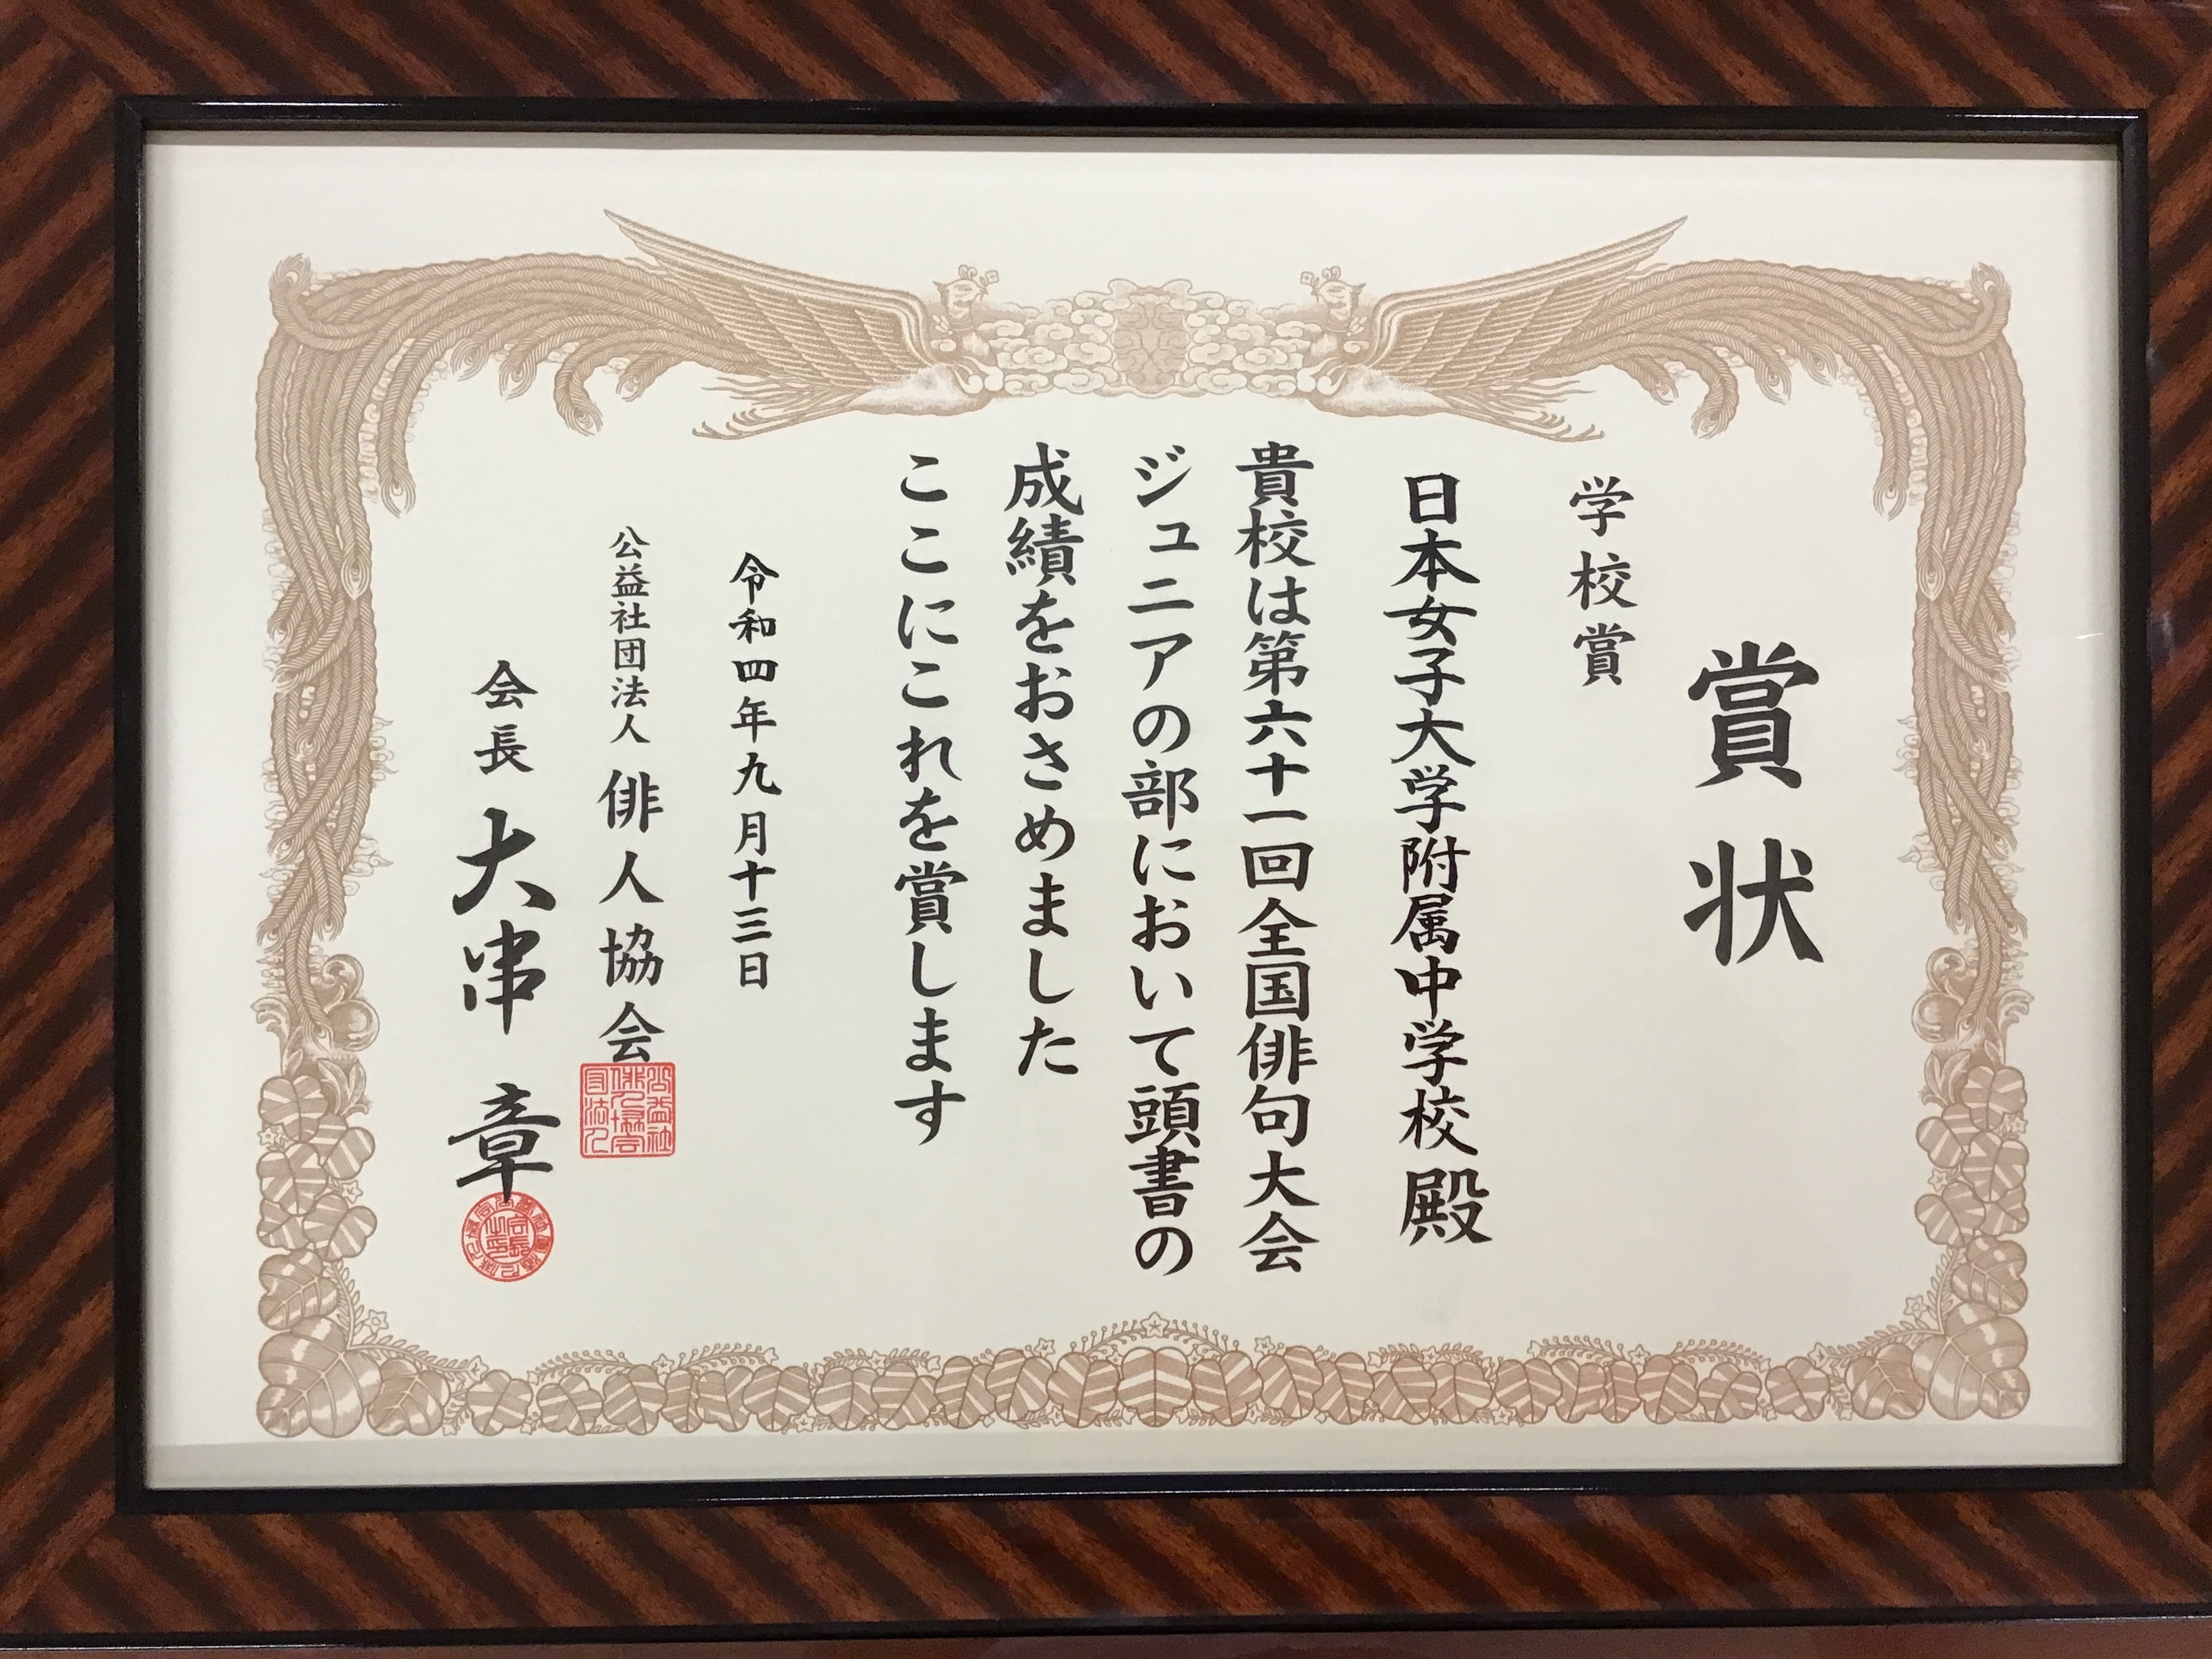 賞状
学校賞
日本女子大学附属中学校 殿
貴校は第六十一回全国俳句大会
ジュニアの部において頭書の
成績をおさめました
ここにこれを賞します
令和四年九月十三日
公益社団法人 俳人協会
会長 大串 章